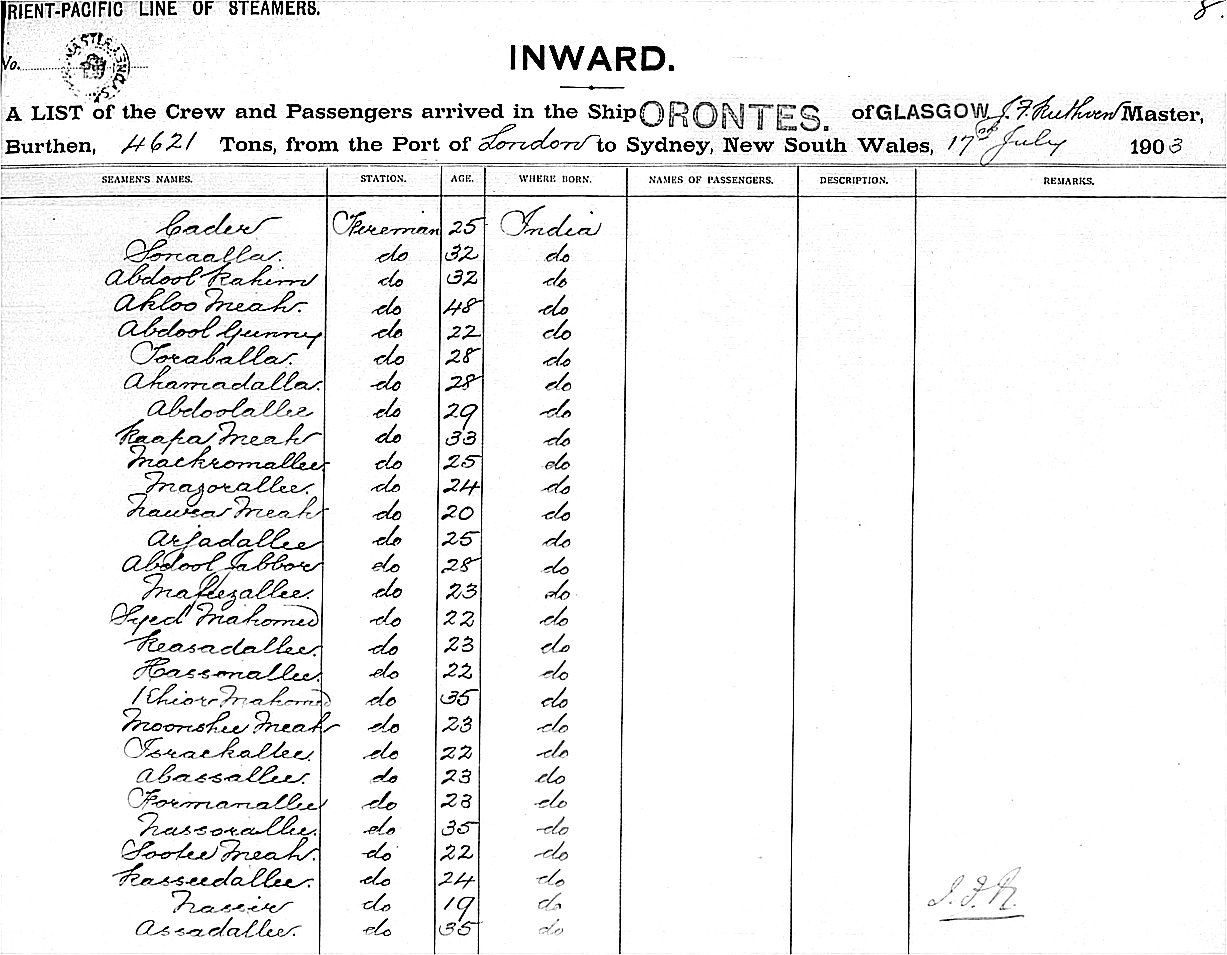 RIENT-PACIFIC LINE OF STEAMERS. 8.
No.
INWARD.
A LIST of the Crew and Passengers arrived in the Ship ORONTES. of GLASGOW J. F. Ruthven Master,
Burthen, 4621 Tons, from the Port of London to Sydney, New South Wales, 17th July 1903
SEAMEN'S NAMES. STATION. AGE. WHERE BORN. NAMES OF PASSENGERS. DESCRIPTION. REMARKS.
Cader Fireman 25 India
Sonaalla. do 32 do
Abdool Rahim do 32 do
Akloo Meah. do 48 do
Abdool Gunny do 22 do
Toraballa. do 28 do
Ahamadalla. do 28 do
Abdoolallee do 29 do
Kaapa Meah do 33 do
Mackromallee do 25 do
Mazorallee. do 24 do
Nawsa Meah do 20 do
Arjadallee do 25 do
Abdool Jabbor do 28 do
Mafeezallee. do 23 do
Syed Mahomed do 22 do
Keasadallee. do 23 do
Hassonallee. do 22 do
Mahomed do 35 do
Moonshee Meah do 23 do
Israckallee. do 22 do
Abassallee. do 23 do
Formanallee do 23 do
Nassorallee. do 35 do
Sootee Meah. do 22 do
Kasseedallee. do 24 do
Nassir do 19 do
Assadallee. do 35 do
J. F. R.